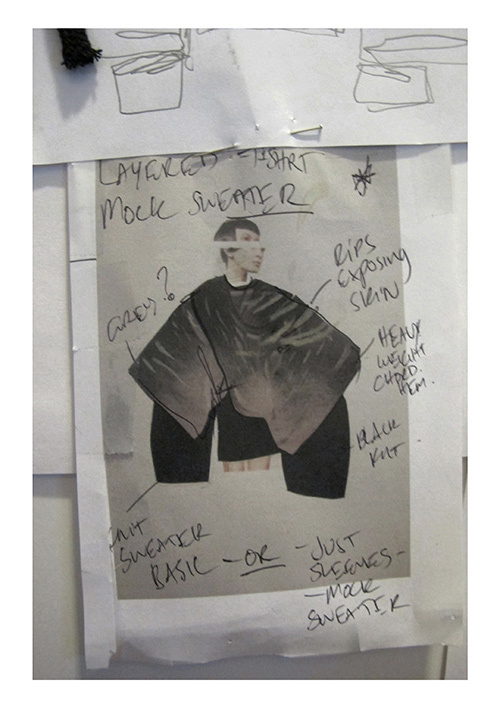 LAYERED - T-SHRT
MOCK SWEATER
RIPS
EXPOSING
SKIN
GREY?
HEAVY
WEIGHT
CHORD.
HEM.
BLACK
KNIT
KNIT
SWEATER
BASIC - OR - JUST
SLEEVES -
- MOCK
SWEATER